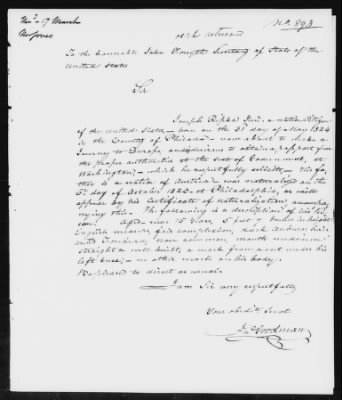 No. 893
17 March
To the honorable John Forsyth Secretary of State of the
United States
Sir
Joseph Ripka Jun. a native Citizen
of the United States born on the 31 day of May 1824
in the County of Philada now about to make a
Journey to Europe and desirous to obtain a passport from
the proper authorities at the seat of Government, at
Washington, which he respectfully solicits
ther is a native of Austria was naturalized on the
day of October at Philadelphia, as will
appear by his Certificate of naturalization accompa
nying this. The following is a description of his per
son. Aged 15 Years, 5 feet 4 inches in height
English measure, fair complexion, dark auburn hair
forehead, nose common, mouth medium
straight & well built, a mark from a cut under his
left knee, no other marks on his body.
Be pleased to direct as usual.
I am Sir very respectfully
Your obedt. Servt
Jno. Goodman